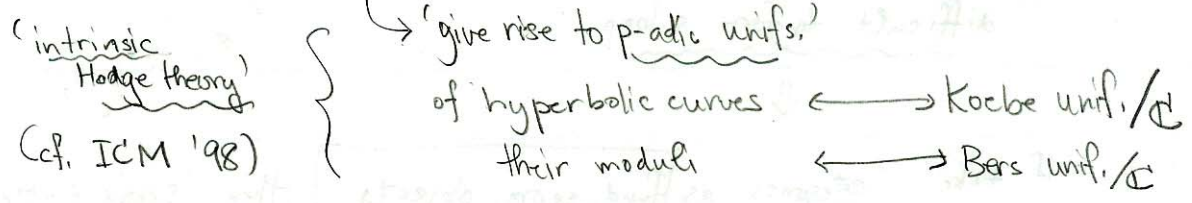 'intrinsic
Hodge theory'
(cf. ICM '98)
→ 'give rise to p-adic unifs.'
of hyperbolic curves ←→ Koebe unif./ℂ
their moduli ←→ Bers unif./ℂ